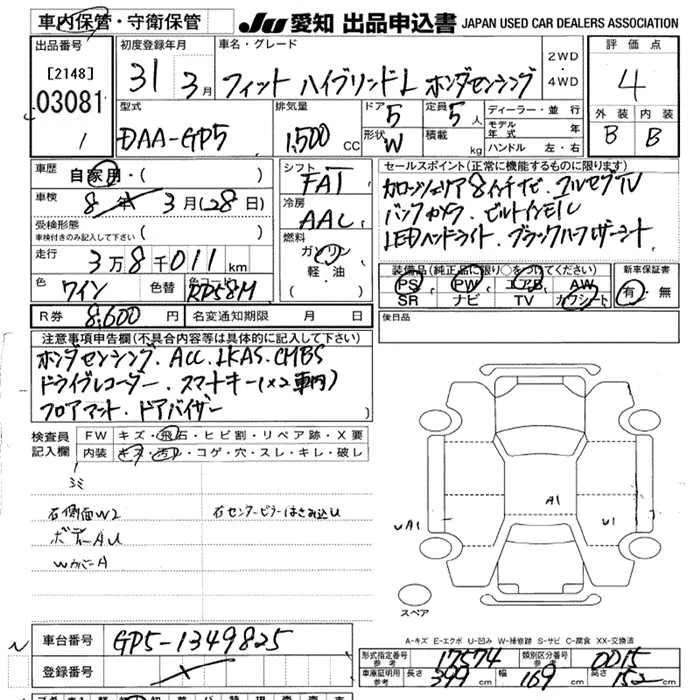 車内保管・守衛保管
JU 愛知 出品申込書 JAPAN USED CAR DEALERS ASSOCIATION
出品番号
[2148]
03081
1
初度登録年月
31 3月
車名・グレード
フィット ハイブリッドL ホンダセンシング
2WD
・
4WD
評価点
4
外装 内装
B B
型式
DAA-GP5
排気量
1,500 CC
ドア 5
定員 5人
形状 W
積載 kg
ディーラー・並行
モデル年式 年
ハンドル 左・右
車歴
自家用・( )
車検
8年 3月(28日)
受検形態
車検付きのみ記入して下さい ・( )
走行
3万8千011km
色 ワイン 色替 カラーコード RP58M
R券 8,600円 名変通知期限 月 日
シフト
FAT
冷房
AAC
燃料
ガソリン
軽・油
( )
セールスポイント(正常に機能するものに限ります)
カロッツェリア8インチナビ・フルセグTV
バックカメラ・ビルトインETC
LEDヘッドライト・ブラックハーフレザーシート
装備品(純正品に限り○をつけてください)
PS PW エアB AW
SR ナビ TV カワシート
新車保証書
有・無
後日品
注意事項申告欄(不具合内容等は具体的に記入して下さい)
ホンダセンシング・ACC・LKAS・CMBS
ドライブレコーダー・スマートキー(×2車内)
フロアマット・ドアバイザー
検査員
記入欄
FW キズ・飛石・ヒビ割・リペア跡・X要
内装 キズ・汚レ・コゲ・穴・スレ・キレ・破レ
ゴミ
右側面W2 右センターピラーはさみ込U
ボデーAU
WカバーA
UA1
A1
U1
スペア
A-キズ E-エクボ U-凹み W-補修跡 S-サビ C-腐食 XX-交換済
車台番号 GP5-1349825
登録番号
形式指定番号 参考 17574 類別区分番号 参考 0015
車庫証明用 参考 長さ 399 cm 幅 169 cm 高さ 152 cm